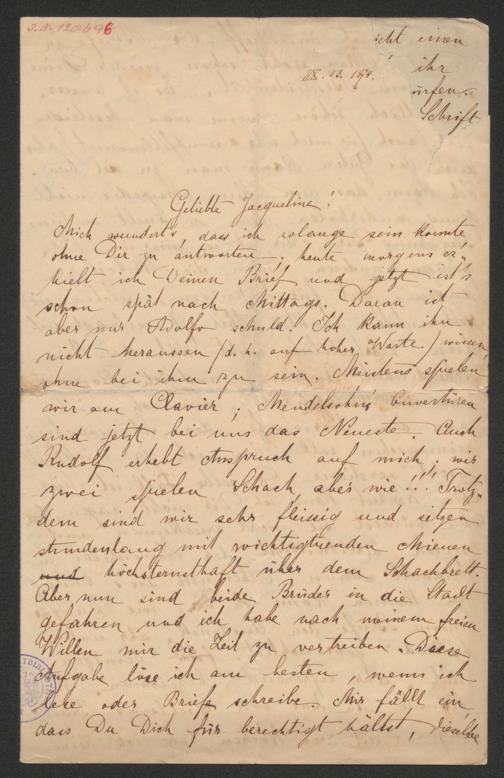 J.N. 120696
icht einen
ihr
ürfen.
Schrift
III. 13. 
Geliebte Jacqueline!
Mich wundert's, dass ich solange sein konnte
ohne Dir zu antworten. heute morgens er-
hielt ich Deinen Brief und jetzt ist's
schon spät nach Mittags. Daran ist
aber nur Adolfo schuld. Ich kann ihn
nicht heraussen /d. h. auf hoher Warte/ wissen,
ohne bei ihm zu sein. Meistens spielen
wir am Clavier; Mendelsohn's Ouvertüren
sind jetzt bei uns das Neueste. Auch
Rudolf erhebt Anspruch auf mich, wir
zwei spielen Schach, aber wie!!" Trotz-
dem sind wir sehr fleissig und sitzen
stundenlang mit wichtigtuenden Mienen
und höchsternsthaft über dem Schachbrett.
Aber nun sind beide Brüder in die Stadt
gefahren und ich habe nach meinem freien
Willen mir die Zeit zu vertreiben. Diese
Aufgabe löse ich am besten, wenn ich
lese oder Briefe schreibe. Mir fällt ein
dass Du Dich für berechtigt hältst, dieselbe